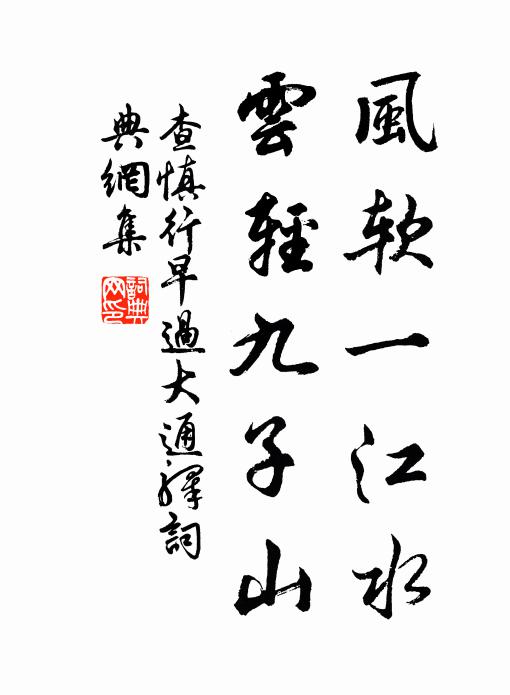 風軟一江水
雲輕九子山
查慎行早過大通驛詞
典網集
詞典网印